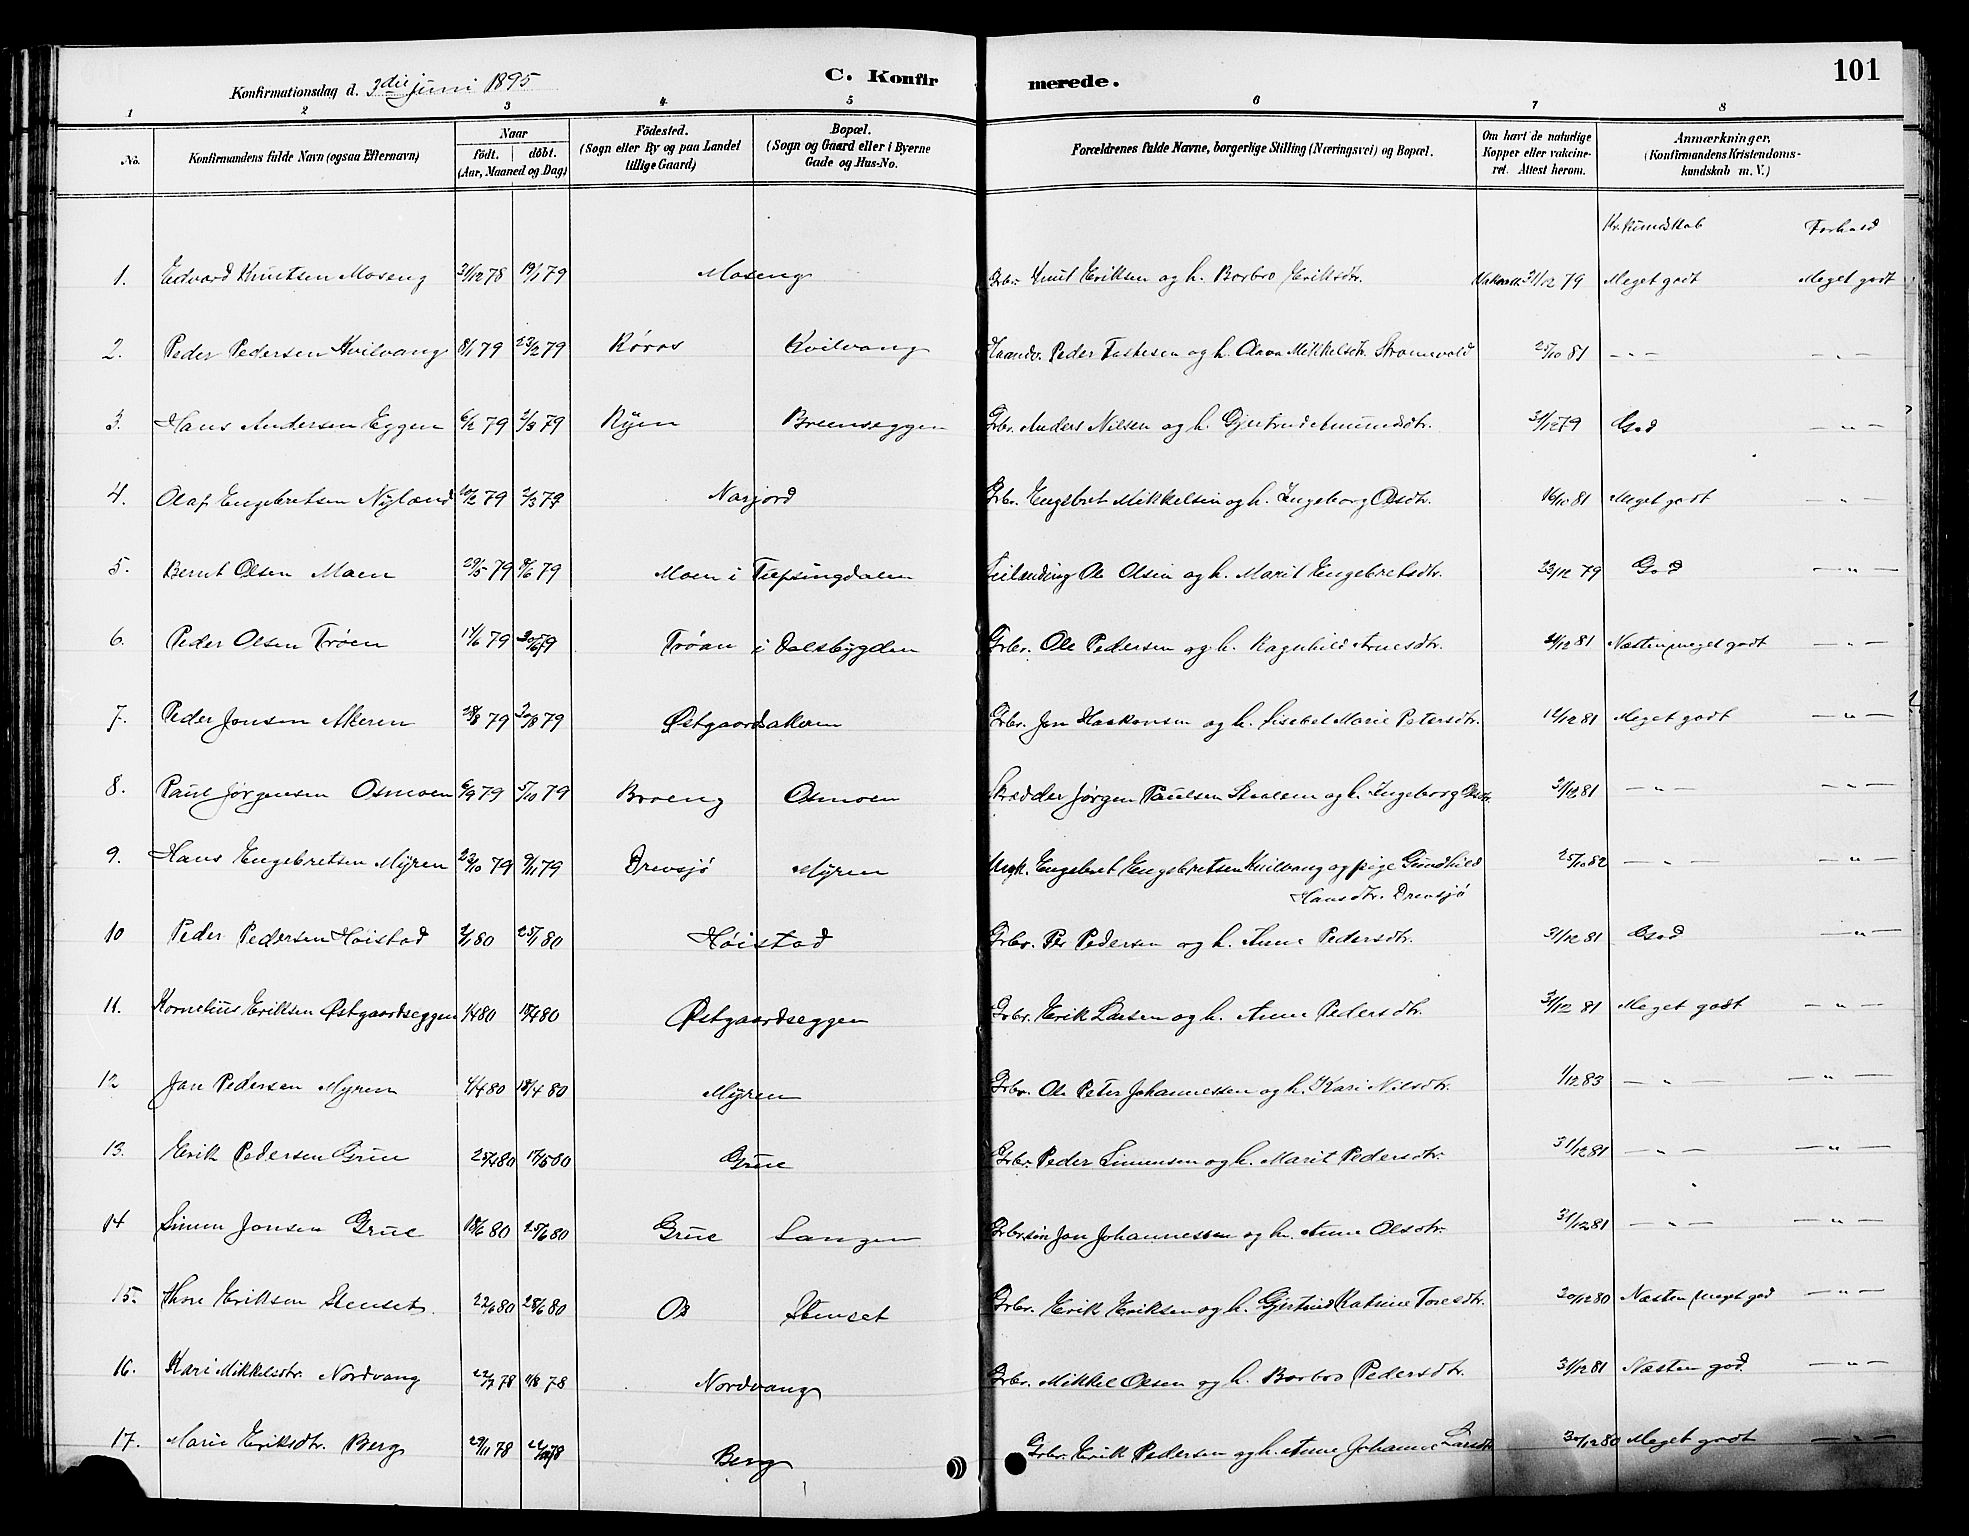 101
Konfirmationsdag d. 3die juni 1895 C. Konfirmerede.
1 2 3 4 5 6 7 8
No. Konfirmandens fulde Navn (ogsaa Efternavn) Naar født. døbt. (Aar, Maaned og Dag) Fødested. (Sogn eller By og paa Landet tillige Gaard) Bopæl. (Sogn og Gaard eller i Byerne Gade og Hus-No. Forældrenes fulde Navne, borgerlige Stilling (Næringsvei) og Bopæl. Om havt de naturlige Kopper eller vakcineret. Attest herom. Anmærkninger. (Konfirmandens Kristendomskundskab m. V.)
Kr. kundskab Forhold
1. Edvard Knutsen Moseng 31/12 78 19/1 79 Moseng Grbr. Knut Eriksen og h. Barbro Eriksdtr. 31/12 79 Meget godt Meget godt
2. Peder Pedersen Kvilvang 8/1 79 23/2 79 Røros Kvilvang Peder og h. Mikkelsdtr. 25/10 81 — " — — " —
3. Hans Andersen Eggen 6/2 79 2/3 79 Ryen Breenseggen Grbr. Anders Nilsen og h. Gjertrud Amundsdtr. 31/12 79 God — " —
4. Olaf Engebretsen Nyland 79 2/3 79 Narjord Grbr. Engebret Mikkelsen og h. Ingeborg Olsdtr. 16/10 81 Meget godt — " —
5. Bernt Olsen Moen 29/5 79 8/6 79 Moen i Tufsingdalen Leilænding Ole Olsen og h. Marit Engebretsdtr. 23/12 79 God — " —
6. Peder Olsen Trøen 14/6 79 79 Trøan i Dalsbygden Grbr. Ole Pedersen og h. Ragnhild Arnesdtr. 21/12 81 Næsten meget godt — " —
7. Peder Jonsen Akeren 79 79 Østgaardsakeren Grbr. Jon Haakonsen og h. Lisebet Marie Petersdtr. 12/12 81 Meget godt — " —
8. Paul Jørgensen Osmoen 6/9 79 5/10 79 Broeng Osmoen Skrædder Jørgen Paulsen og h. Ingeborg Olsdtr. 21/12 81 — " — — " —
9. Hans Engebretsen Myren 23/10 79 9/11 79 Drevsjø Myren Ungk. Engebret Engebretsen Kvilvang og pige Gundhild 25/10 82 — " — — " —
Hansdtr. Drevsjø
10 Peder Pedersen Høistad 2/1 80 25/1 80 Høistad Grbr. Per Pedersen og h. Anne Pedersdtr. 31/12 81 God — " —
11. Kornelius Eriksen Østgaardseggen 1/4 80 18/4 80 Østgaardseggen Grbr. Erik Larsen og h. Anne Pedersdtr. 31/12 81 Meget godt — " —
12 Jon Pedersen Myren 4/4 80 18/4 80 Myren Grbr. Ole Peter Johannessen og h. Kari Nilsdtr. 1/12 83 — " — — " —
13. Erik Pedersen Grue 25/4 80 17/5 80 Grue Grbr. Peder Simensen og h. Marit Pedersdtr. 31/12 81 — " — — " —
14 Simen Jonsen Grue 18/6 80 25/6 80 Grue Langen Grbr.søn Jon Johannessen og h. Anne Olsdtr. 31/12 81 — " — — " —
15. Thore Eriksen Stenset. 22/6 80 28/6 80 Os Stenset Grbr. Erik Eriksen og h. Gjertrud Katrine Toresdtr. 30/12 80 Næsten meget god — " —
16. Kari Mikkelsdtr. Nordvang 22/7 78 78 Nordvang Grbr. Mikkel Olsen og h. Barbro Pedersdtr. 31/12 81 Næsten god — " —
17. Marie Eriksdtr. Berg 29/11 78 78 Berg Grbr. Erik Pedersen og h. Anne Johanne Larsdtr. 30/12 80 Meget godt — " —